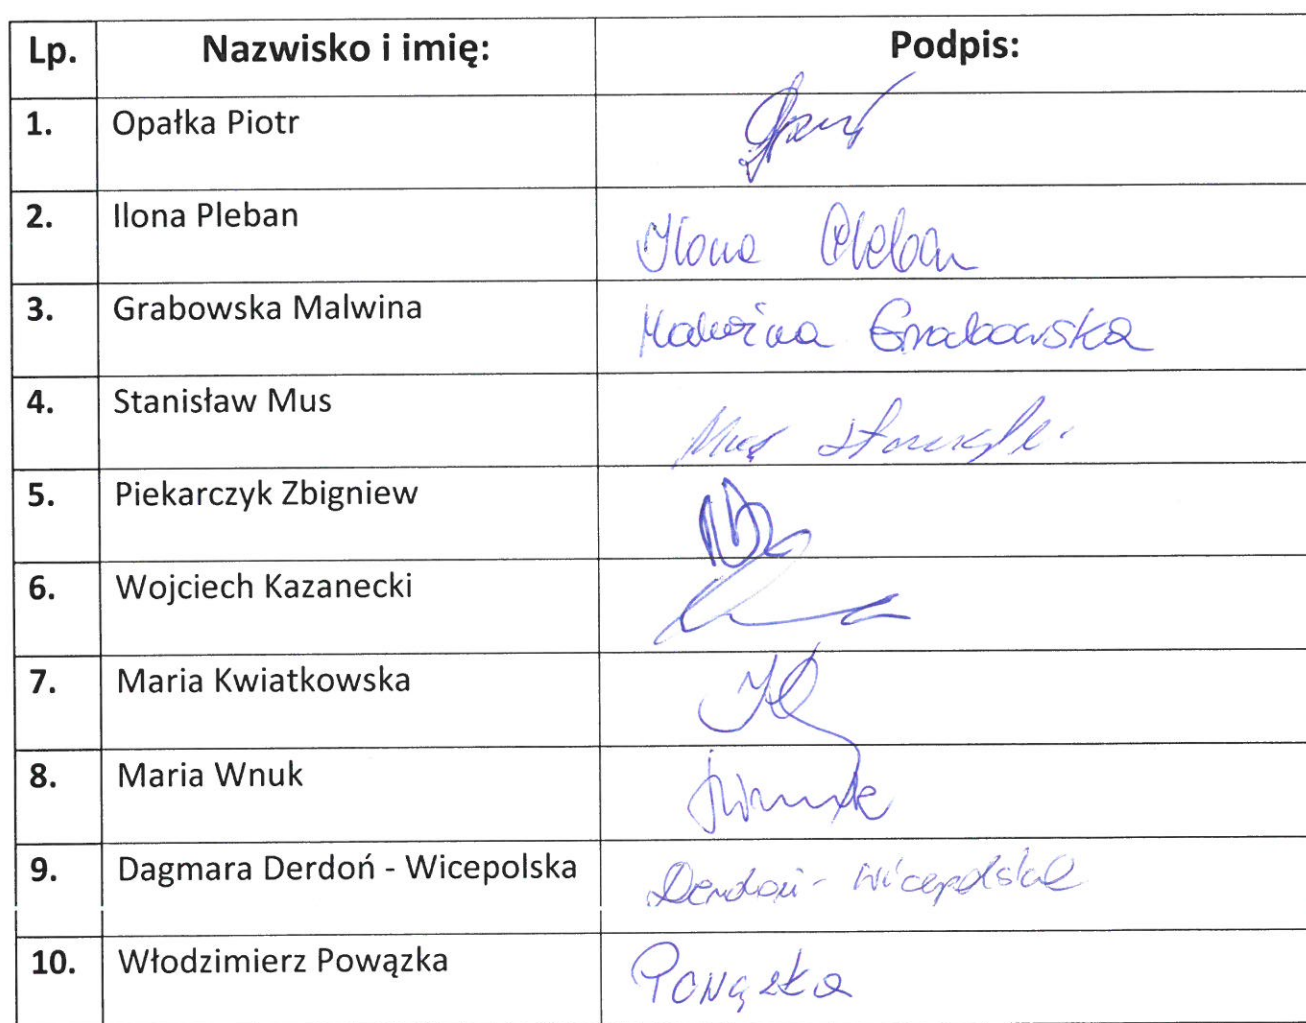 Lp. Nazwisko i imię: Podpis:
1. Opałka Piotr
2. Ilona Pleban Ilona Pleban
3. Grabowska Malwina Malwina Grabowska
4. Stanisław Mus Mus
5. Piekarczyk Zbigniew
6. Wojciech Kazanecki
7. Maria Kwiatkowska
8. Maria Wnuk Wnuk
9. Dagmara Derdoń - Wicepolska Derdoń - Wicepolska
10. Włodzimierz Powązka Powązka